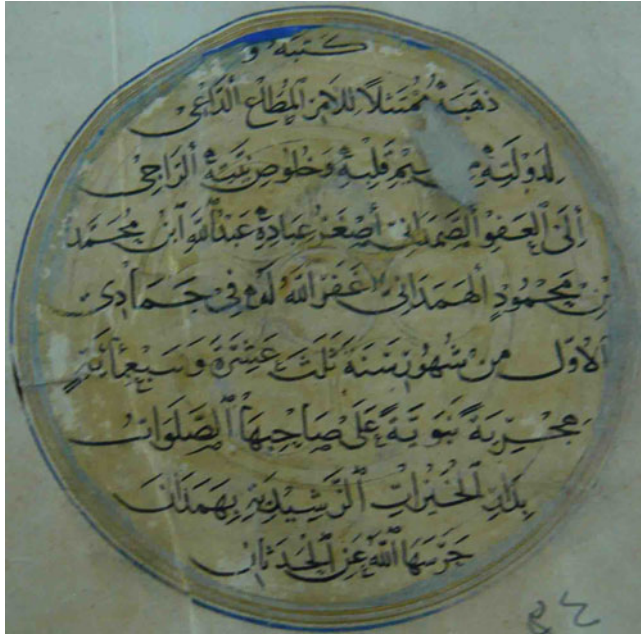 كتبه و
ذهبه ممتثلا للامر المطاع الداعى
لدولته قلبه وخلوص نيته الراجى
إلى العفو الصمدانى أصغر عباده عبد الله ابن محمد
بن محمود الهمدانى غفر الله له فى جمادى
الاول من شهور سنة ثلث عشرة وسبعمائة
هجرية نبوية على صاحبها الصلوات
بدار الخيرات الرشيدية بهمدان
حرسها الله عن الحدثان